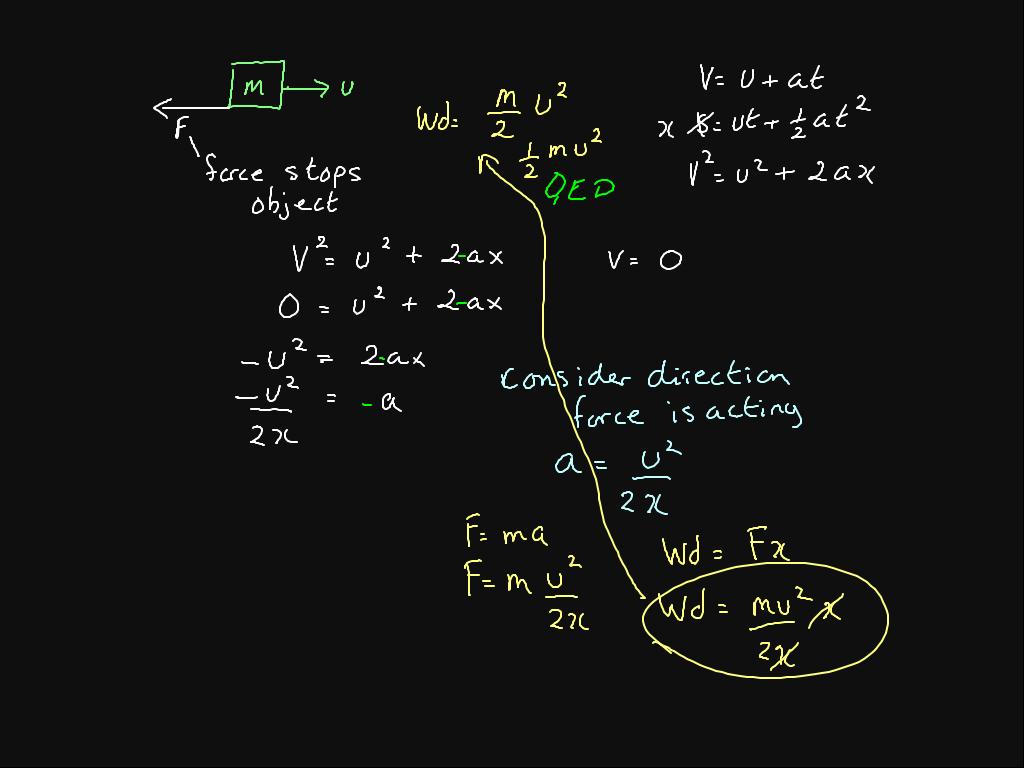 m → u
F
force stops
object
Wd = m/2 u²
½ mu²
QED
V = u + at
x s = ut + ½ at²
V² = u² + 2ax
V² = u² + 2-ax
V = 0
0 = u² + 2-ax
-u² = 2-ax
-u²/2x = -a
Consider direction
force is acting
a = u²/2x
F = ma
F = m u²/2x
Wd = Fx
Wd = mu²/2x x